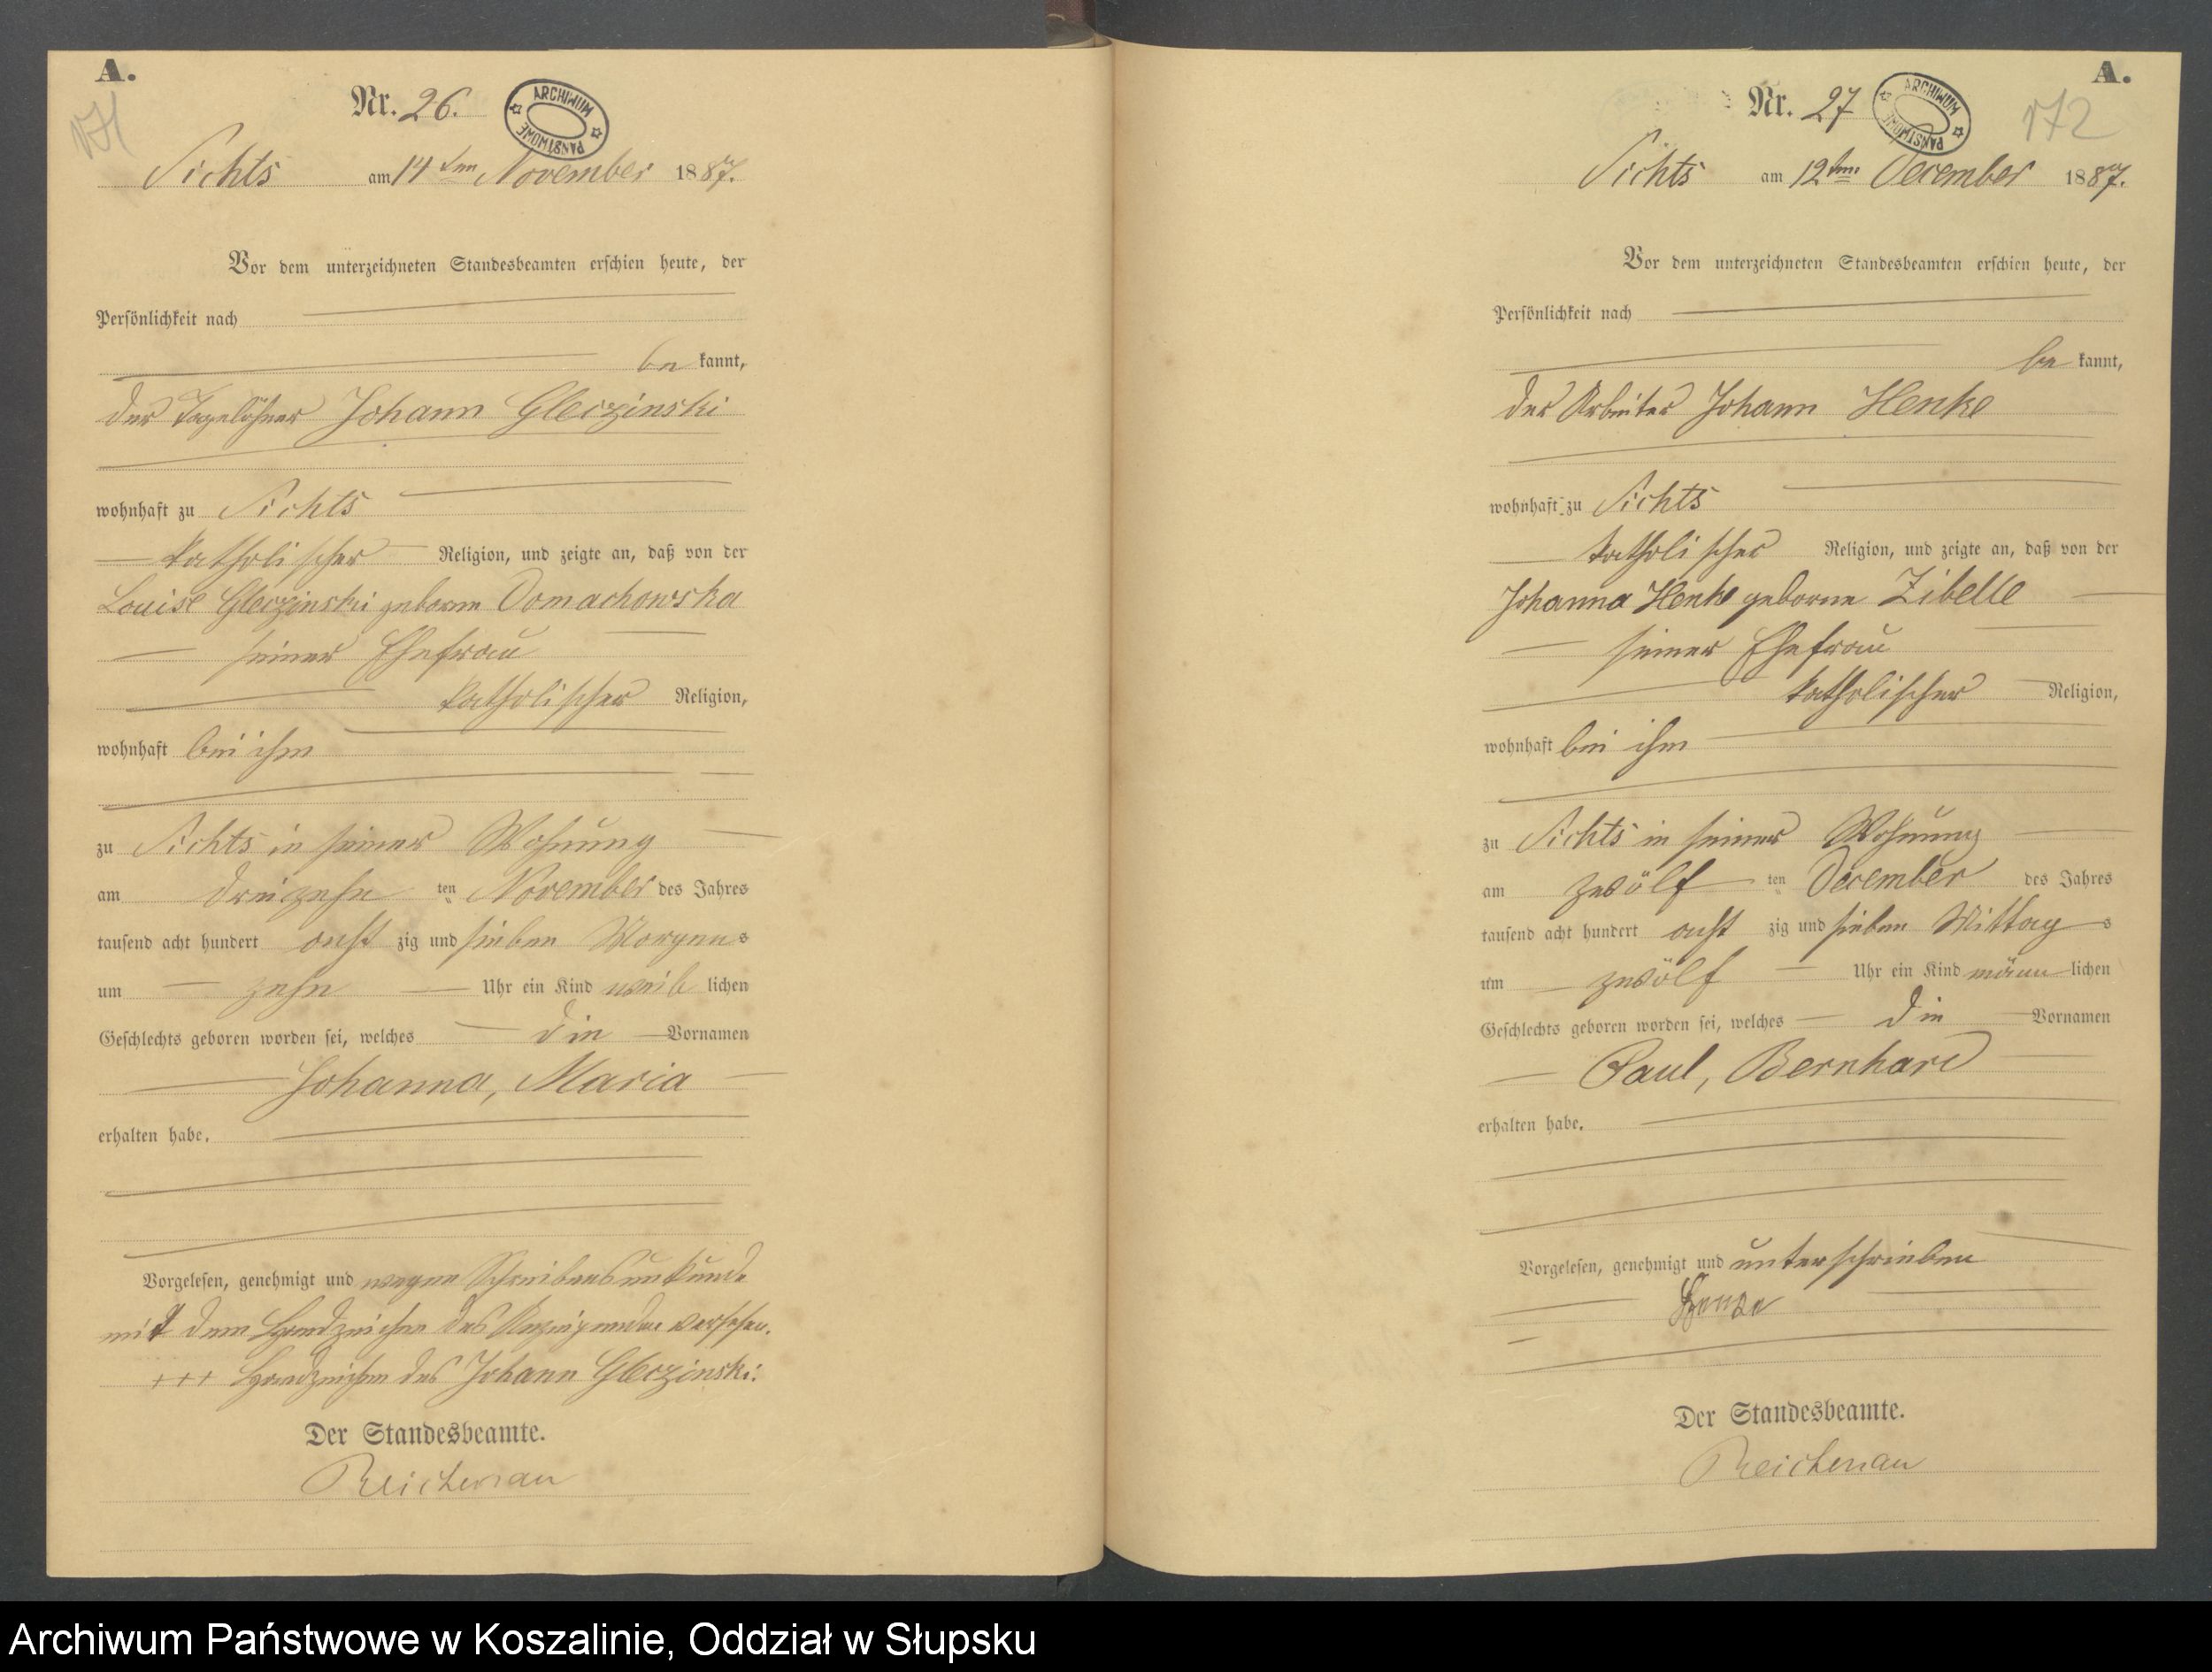 A.
171
Nr. 26.
ARCHIWUM PAŃSTWOWE
Sichts am 14ten November 1887.
Vor dem unterzeichneten Standesbeamten erschien heute, der
Persönlichkeit nach
be kannt,
der Tagelöhner Johann Gleczinski
wohnhaft zu Sichts
katholischer Religion, und zeigte an, daß von der
Louise Gleczinski geborne Domachowska
seiner Ehefrau
katholischer Religion,
wohnhaft bei ihm
zu Sichts in seiner Wohnung
am dreizehn ten November des Jahres
tausend acht hundert acht zig und sieben Morgens
um zehn Uhr ein Kind weib lichen
Geschlechts geboren worden sei, welches die Vornamen
Johanna, Maria
erhalten habe.
Vorgelesen, genehmigt und wegen Schreibensunkunde
mit dem Handzeichen des Anzeigenden versehen.
+++ Handzeichen des Johann Gleczinski.
Der Standesbeamte.
Reichenau
A.
172
Nr. 27
ARCHIWUM PAŃSTWOWE
Sichts am 12ten December 1887.
Vor dem unterzeichneten Standesbeamten erschien heute, der
Persönlichkeit nach
be kannt,
der Arbeiter Johann Henke
wohnhaft zu Sichts
katholischer Religion, und zeigte an, daß von der
Johanna Henke geborne Zibelle
seiner Ehefrau
katholischer Religion,
wohnhaft bei ihm
zu Sichts in seiner Wohnung
am zwölf ten December des Jahres
tausend acht hundert acht zig und sieben Mittags
um zwölf Uhr ein Kind männ lichen
Geschlechts geboren worden sei, welches die Vornamen
Paul, Bernhard
erhalten habe.
Vorgelesen, genehmigt und unterschrieben
Henke
Der Standesbeamte.
Reichenau
Archiwum Państwowe w Koszalinie, Oddział w Słupsku